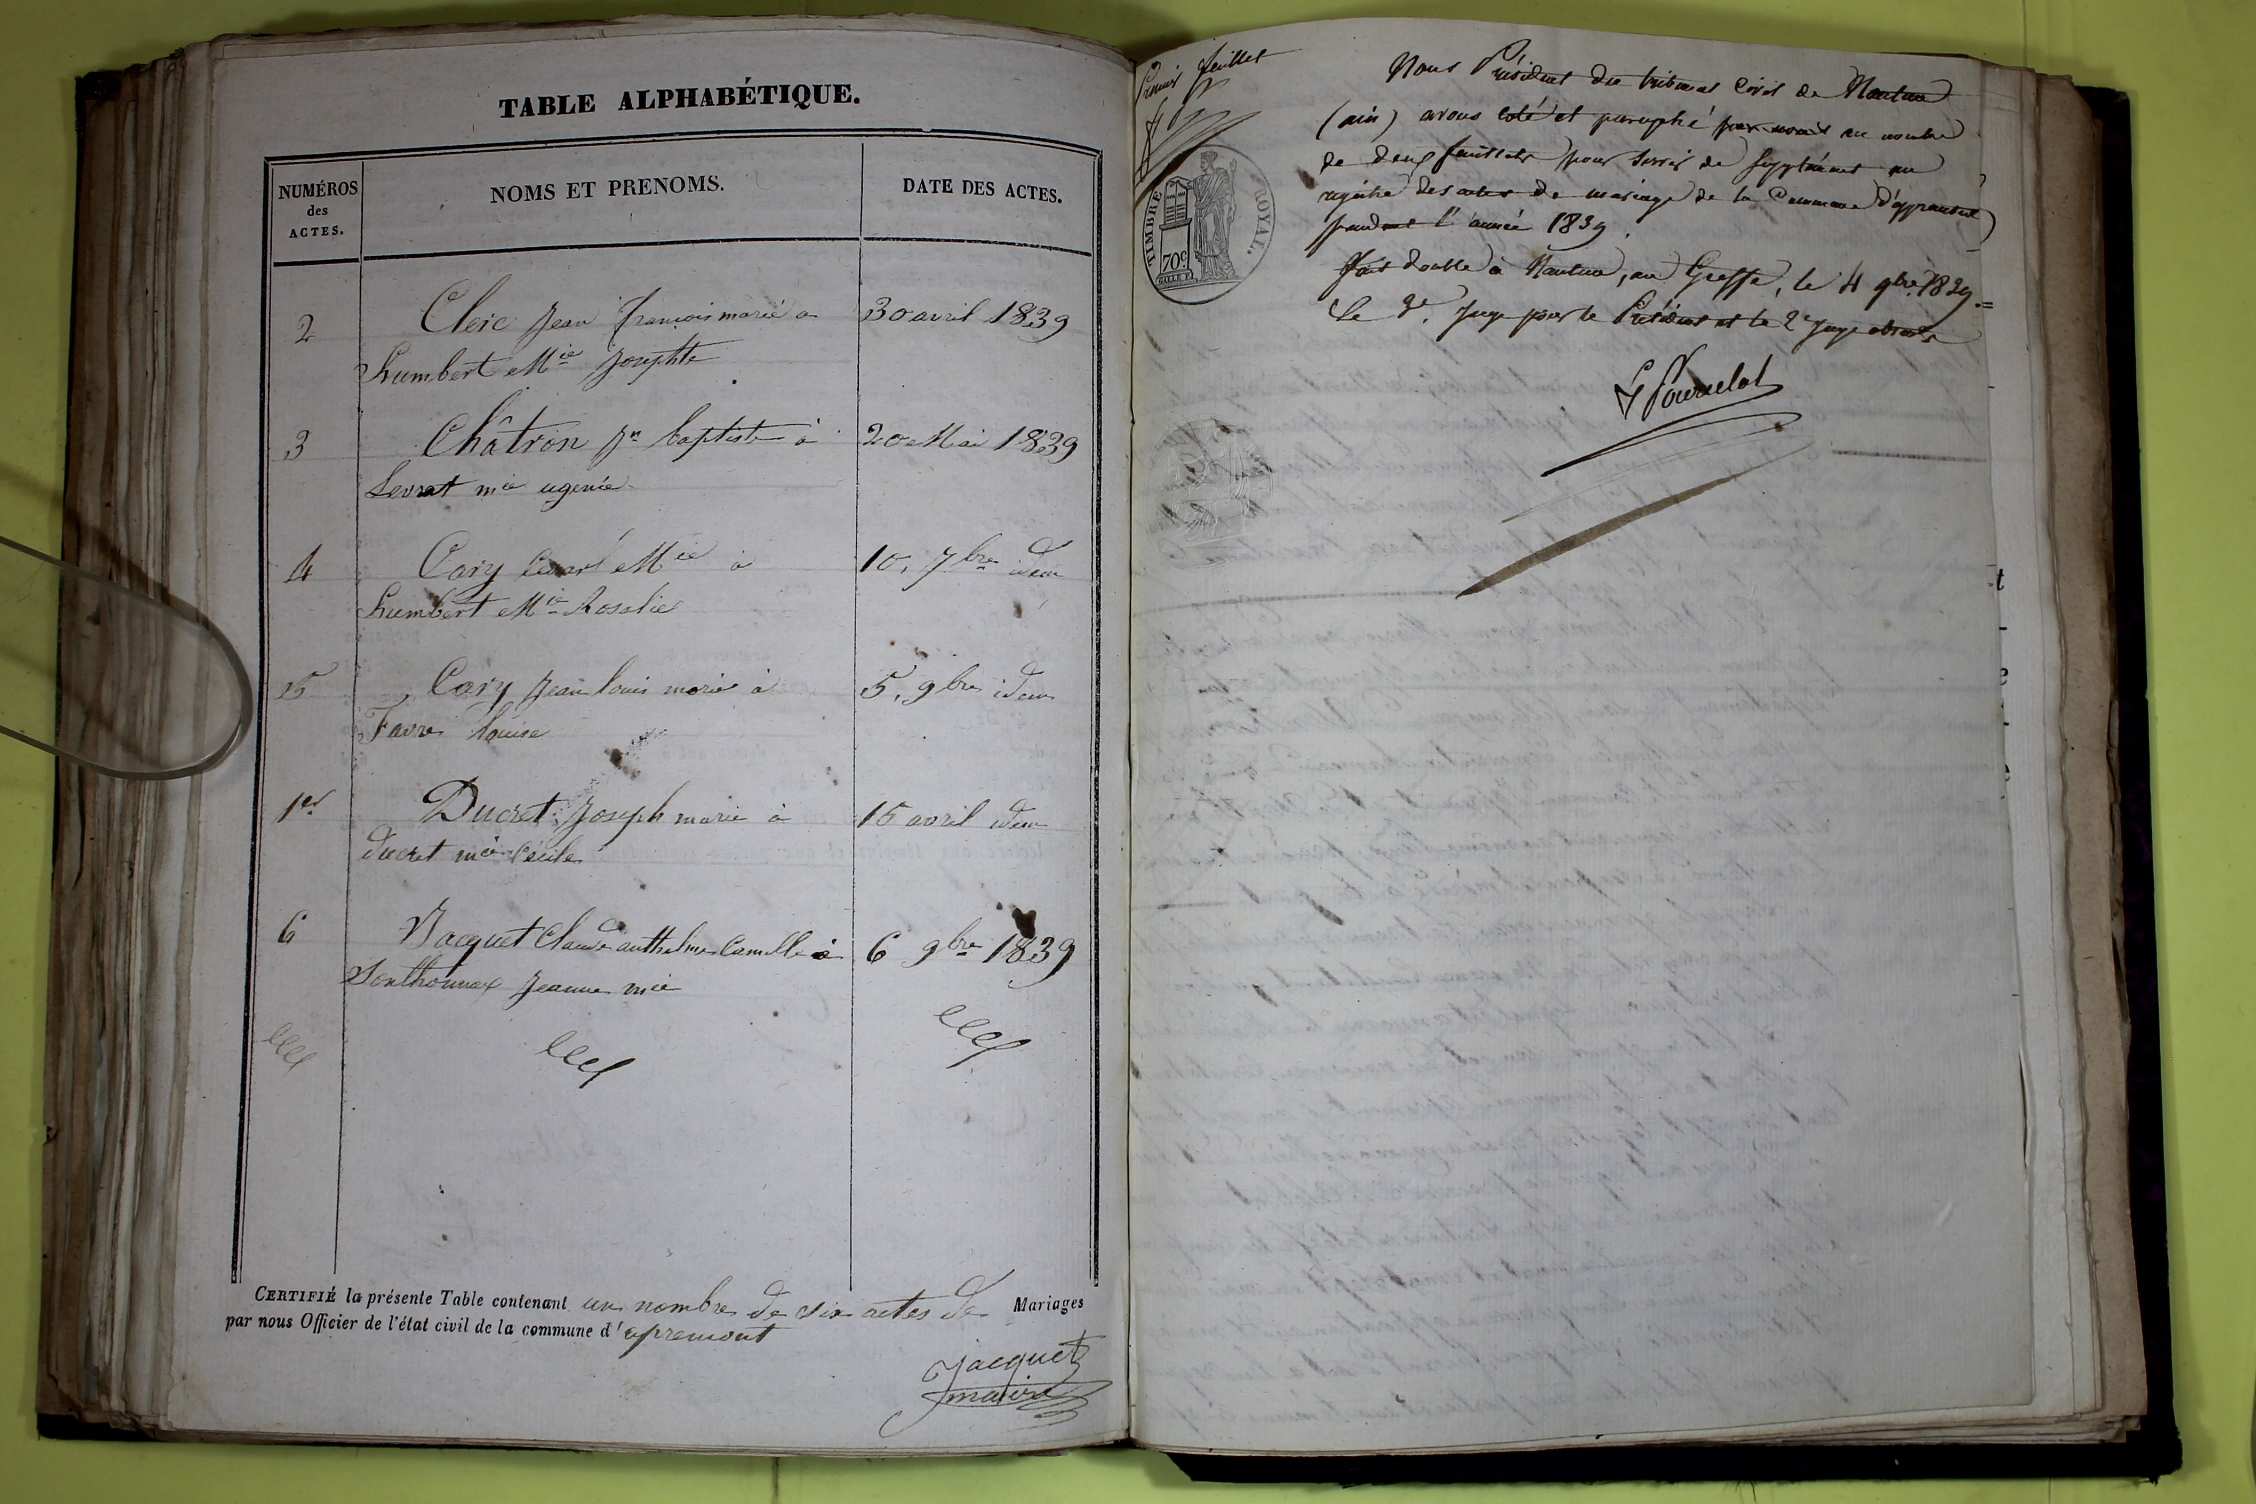 TABLE ALPHABÉTIQUE.
NUMÉROS
des
ACTES.
NOMS ET PRENOMS.
DATE DES ACTES.
2 Clerc Jean françois marié a 30 avril 1839
humbert Mie Josephte
3 Châtron Jn baptiste à 20 Mai 1839
Levrat mie ugenie
4 Cary Mie à 10, 7bre idem
humbert Mie Rosalie
5 Cary Jean louis marié à 5, 9bre idem
Favre louise
1er Ducret Joseph marié à 15 avril idem
ducret mie Cécile
6 Jacquet Claude anthelme Camille à 6 9bre 1839
Sonthonnax Jeanne mie
CERTIFIÉ la présente Table contenant un nombre de six actes de Mariages
par nous Officier de l'état civil de la commune d'apremont
Jacquet
maire
Premier feuillet
TIMBRE ROYAL.
70c
Nous Président du tribunal Civil de Nantua
(ain) avons coté et paraphé par nous au nombre
de deux feuillets pour servir de supplément au
registre des actes de mariage de la Commune d'apremont
pendant l'année 1839.
fait double à Nantua, au Greffe, le 4 9bre 1839.=
Le 3e. Juge pour le Président et le 2e Juge absents